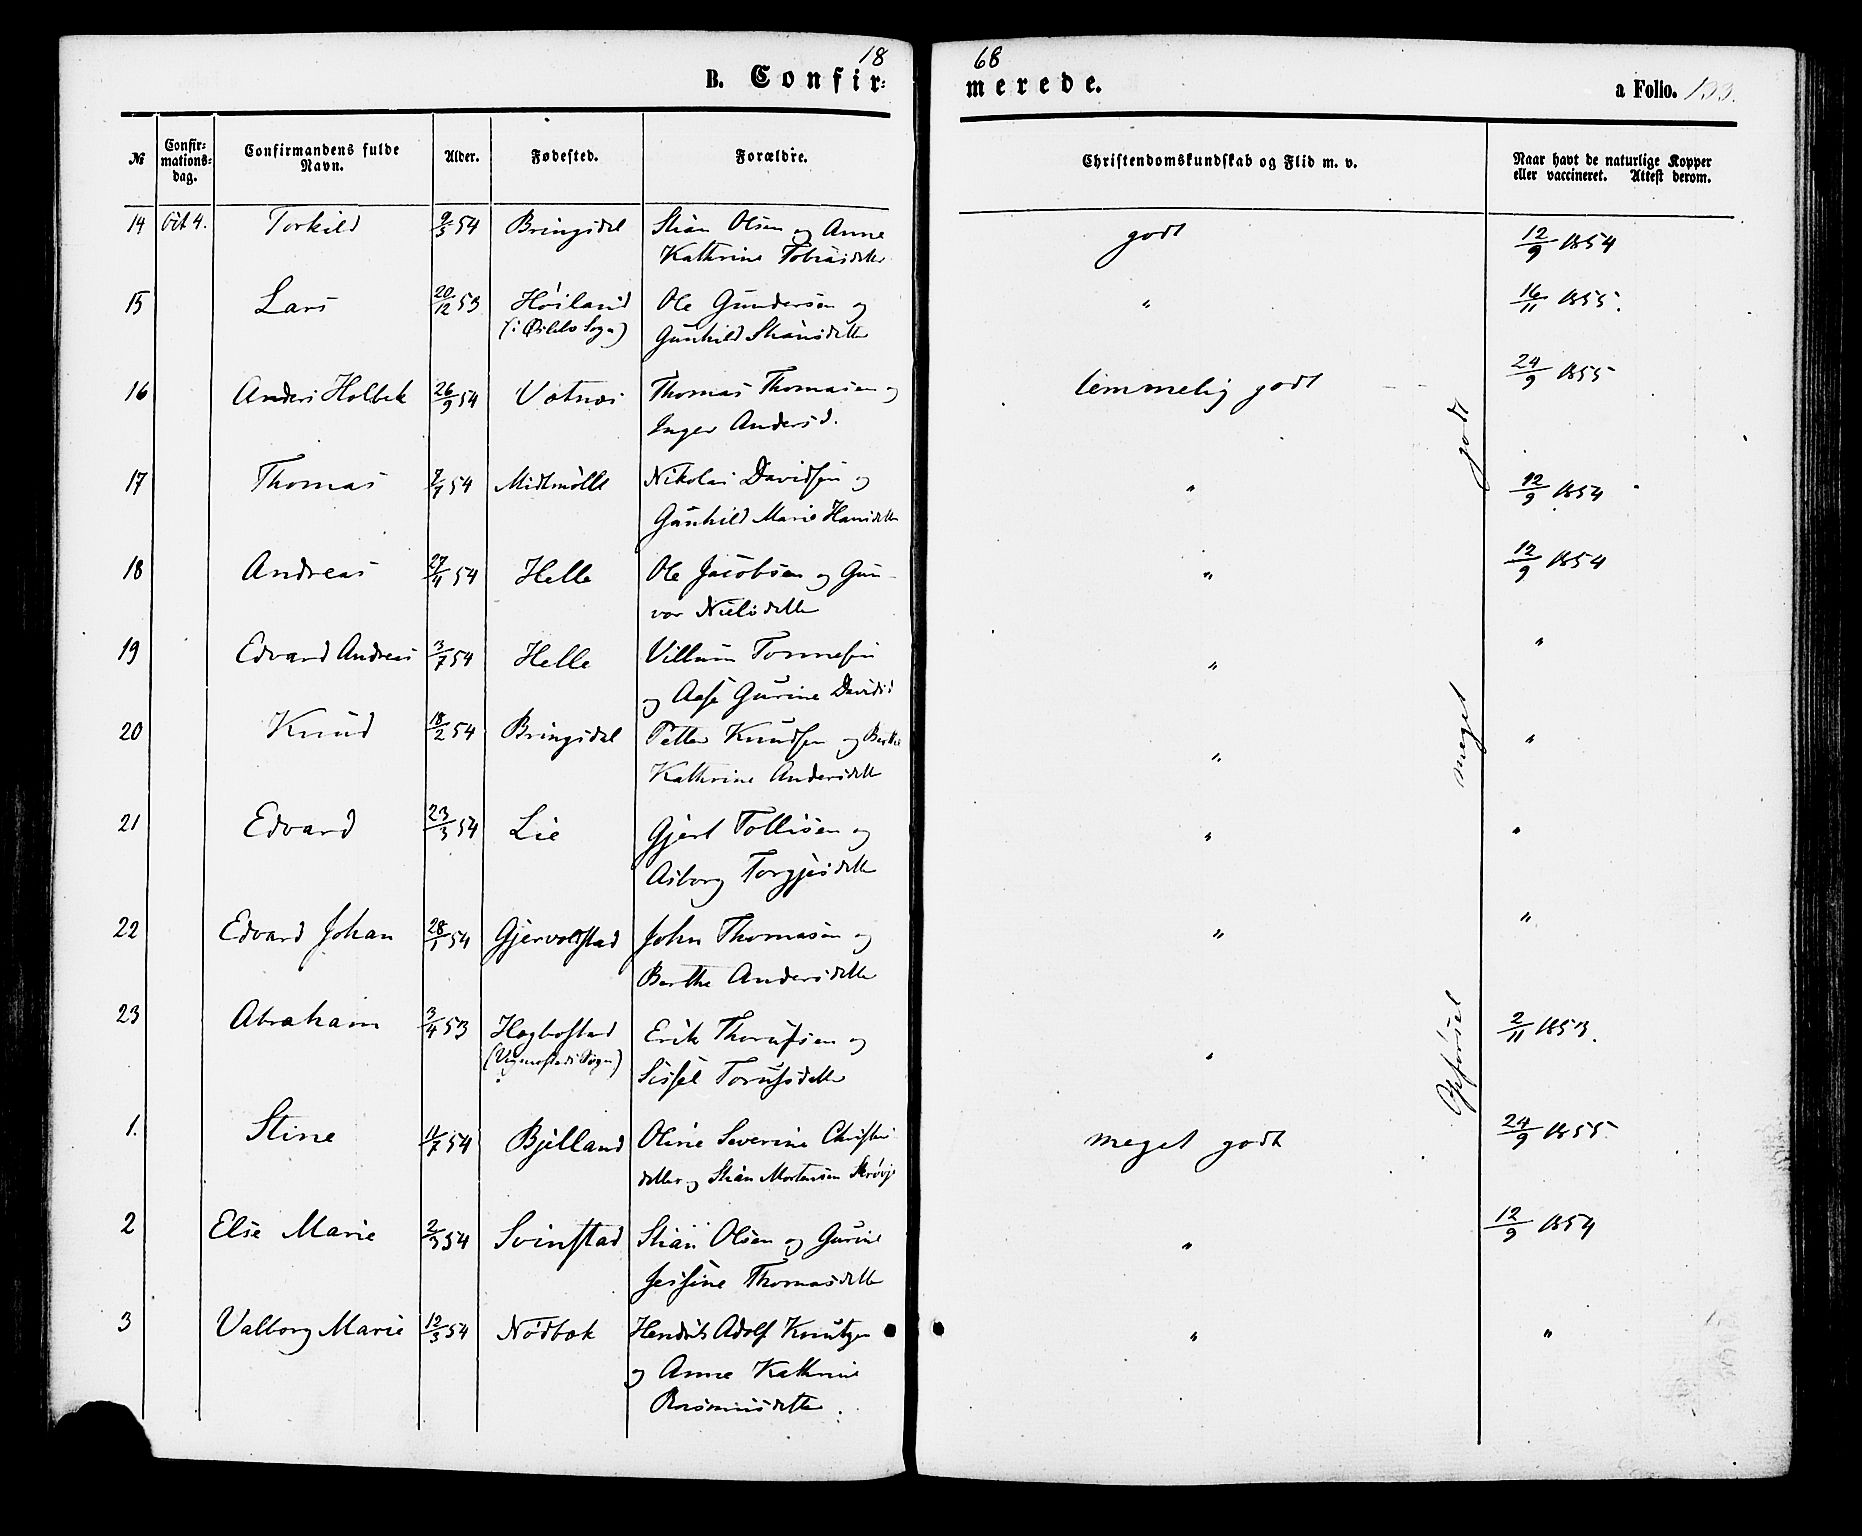 18 68
B. Confir= merede. a Folio. 133.
№ Confir=mations=dag. Confirmandens fulde Navn. Alder. Fødested. Forældre. Christendomskundskab og Flid m. v. Naar havt de naturlige Kopper eller vaccineret. Attest derom.
14 Oct 4. Torkild 9/3 54 Bringsdal Stian Olsen og Anne godt 12/9 1854
Kathrine Tobiasdatter
15 Lars 20/12 53 Høiland Ole Gundersen og " 16/11 1855.
(i Øslebø Sogn) Gunhild Stiansdatter
16 Anders Holbek 26/9 54 Votnæs Thomas Thomasen og temmelig godt 24/9 1855
Inger Andersd.
17 Thomas 2/7 54 Midtmølle Nikolai Davidsen og " 12/9 1854
Gunhild Marie Hansdatter
18 Andreas 27/11 54 Helle Ole Jacobsen og Gun- " 12/9 1854
vor Nielsdatter
19 Edvard Andreas 3/7 54 Helle Villum Tønnesen " "
og Aase Gurine Davidsd
20 Knud 18/2 54 Bringsdal Petter Knudsen og Berthe " "
Kathrine Andersdatter
21 Edvard 23/3 54 Lie Gjert Tollisen og " "
Asborg Torgjusdatter
22 Edvard Johan 28/1 54 Gjervoldstad John Thomasen og " "
Berthe Andersdatter
23 Abraham 3/4 53 Høgbostad Erik Thorussen og " 2/11 1853.
(Vigmostads Sogn) Sissel Torusdatter
1. Stine 11/7 54 Bjelland Oline Severine Christens meget godt 24/9 1855.
datter og Stian Mortensen Skrøvje
2 Else Marie 2/3 54 Svinstad Stian Olsen og Gurine " 12/9 1854
Jessine Thomasdatter
3 Valborg Marie 12/3 54 Nødbæk Hendrik Adolf Knutzen " "
og Anne Kathrine
Rasmusdatter.
Opførsel meget godt